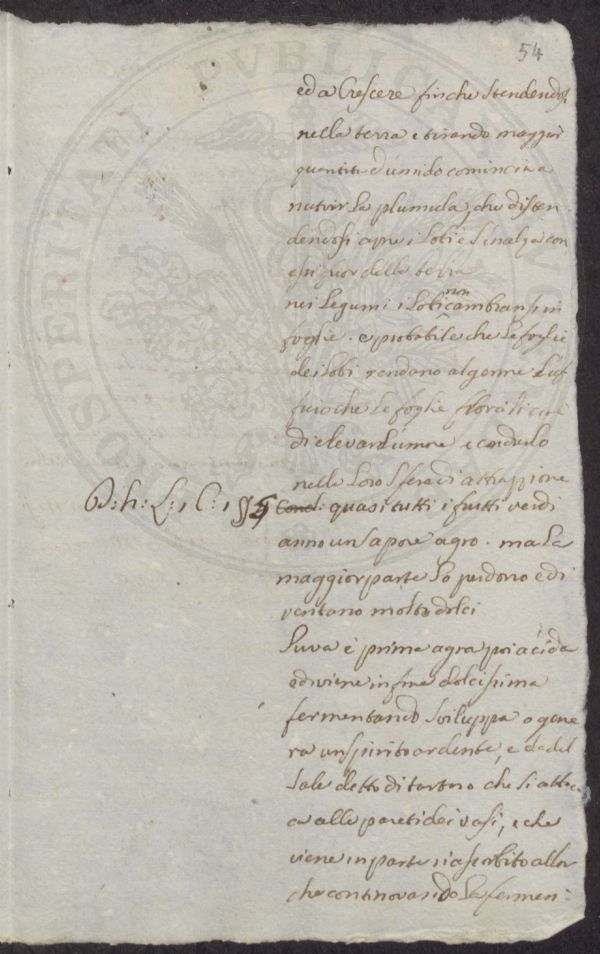 54
ed a Crescere finche stendendosi
nella terra e tirando maggior
quantità d'umido comincia a
nutrir la plumula, che disten
dendosi apre i Lobi e s'inalza con
essi fuor della terra
nei Legumi i Lobi non cambiansi in
foglie. e probabile che le foglie
dei lobi rendano al germe l'uf
ficio che le foglie florali
di elevar l'umore e condurlo
nella loro sfera di attrazione
D: h: L: 1 C: 1 §§ Concl: quasi tutti i frutti verdi
anno un sapore agro. ma la
maggior parte lo perdono e di
ventano molto dolci
l'uva è prima agra poi acida
e diviene in fine dolcissima
fermentando sviluppa o gene
ra un spirito ardente, e da del
sale detto di tartaro che si attac
ca alle pareti dei vasi, e che
viene in parte riasorbito allor
che continovando la fermen:
PVBLICA
PROSPERITATI